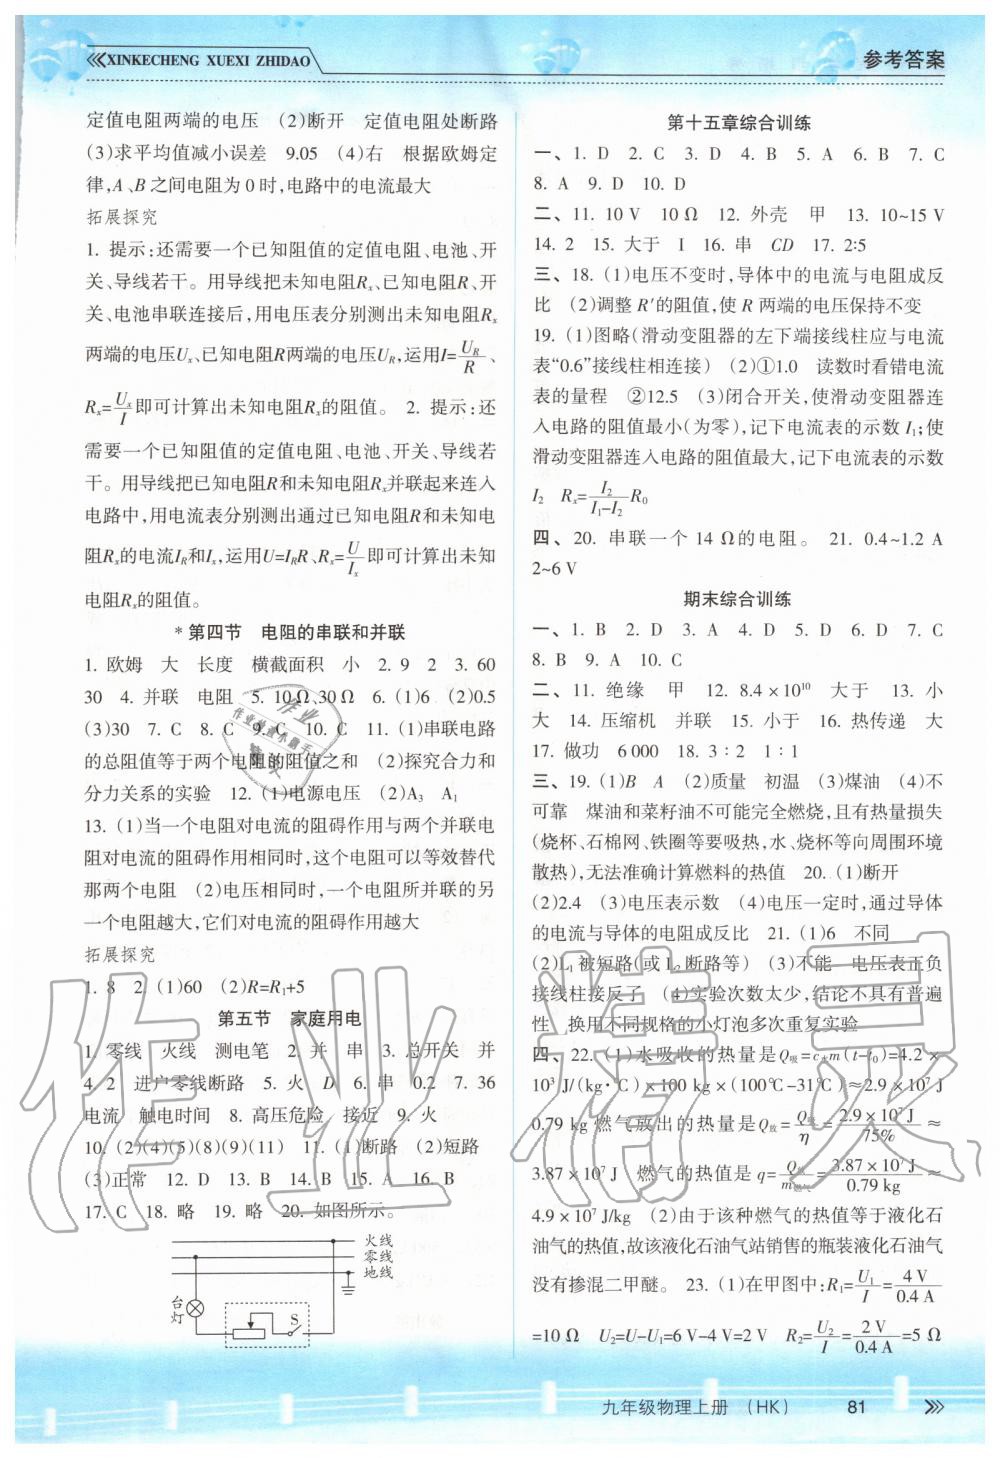 XINKECHENG XUEXI ZHIDAO
参考答案
定值电阻两端的电压 (2)断开 定值电阻处断路
(3)求平均值减小误差 9.05 (4)右 根据欧姆定
律,A、B之间电阻为0时,电路中的电流最大
拓展探究
1. 提示:还需要一个已知阻值的定值电阻、电池、开
关、导线若干。用导线把未知电阻Rx、已知电阻R、开
关、电池串联连接后,用电压表分别测出未知电阻Rx
两端的电压Ux、已知电阻R两端的电压UR,运用I=UR/R、
Rx=Ux/I即可计算出未知电阻Rx的阻值。 2. 提示:还
需要一个已知阻值的定值电阻、电池、开关、导线若
干。用导线把已知电阻R和未知电阻Rx并联起来连入
电路中,用电流表分别测出通过已知电阻R和未知电
阻Rx的电流IR和Ix,运用U=IRR、Rx=U/Ix即可计算出未知
电阻Rx的阻值。
*第四节 电阻的串联和并联
1. 欧姆 大 长度 横截面积 小 2. 9 2 3. 60
30 4. 并联 电阻 5. 10Ω、30Ω 6. (1)6 (2)0.5
(3)30 7. C 8. C 9. C 10. C 11. (1)串联电路
的总阻值等于两个电阻的阻值之和 (2)探究合力和
分力关系的实验 12. (1)电源电压 (2)A3 A1
13. (1)当一个电阻对电流的阻碍作用与两个并联电
阻对电流的阻碍作用相同时,这个电阻可以等效替代
那两个电阻 (2)电压相同时,一个电阻所并联的另
一个电阻越大,它们对电流的阻碍作用越大
拓展探究
1. 8 2. (1)60 (2)R=R1+5
第五节 家庭用电
1. 零线 火线 测电笔 2. 并 串 3. 总开关 并
4. 2 进户零线断路 5. 火 D 6. 串 0.2 7. 36
电流 触电时间 8. 高压危险 接近 9. 火
10. (2)(4)(5)(8)(9)(11) 11. (1)断路 (2)短路
(3)正常 12. D 13. B 14. B 15. A 16. B
17. C 18. 略 19. 略 20. 如图所示。
火线
零线
地线
台灯
S
第十五章综合训练
一、1. D 2. C 3. D 4. B 5. A 6. B 7. C
8. A 9. D 10. D
二、11. 10 V 10 Ω 12. 外壳 甲 13. 10~15 V
14. 2 15. 大于 I 16. 串 CD 17. 2:5
三、18. (1)电压不变时,导体中的电流与电阻成反
比 (2)调整R′的阻值,使R两端的电压保持不变
19. (1)图略(滑动变阻器的左下端接线柱应与电流
表“0.6”接线柱相连接) (2)①1.0 读数时看错电流
表的量程 ②12.5 (3)闭合开关,使滑动变阻器连
入电路的阻值最小(为零),记下电流表的示数I1;使
滑动变阻器连入电路的阻值最大,记下电流表的示数
I2 Rx=I2/(I1-I2)R0
四、20. 串联一个14 Ω的电阻。 21. 0.4~1.2 A
2~6 V
期末综合训练
一、1. B 2. D 3. A 4. D 5. D 6. D 7. C
8. B 9. A 10. C
二、11. 绝缘 甲 12. 8.4×10¹⁰ 大于 13. 小
大 14. 压缩机 并联 15. 小于 16. 热传递 大
17. 做功 6 000 18. 3∶2 1∶1
三、19. (1)B A (2)质量 初温 (3)煤油 (4)不
可靠 煤油和菜籽油不可能完全燃烧,且有热量损失
(烧杯、石棉网、铁圈等要吸热,水、烧杯等向周围环境
散热),无法准确计算燃料的热值 20. (1)断开
(2)2.4 (3)电压表示数 (4)电压一定时,通过导体
的电流与导体的电阻成反比 21. (1)6 不同
(2)L1被短路(或L2断路等) (3)不能 电压表正负
接线柱接反了 (4)实验次数太少,结论不具有普遍
性 换用不同规格的小灯泡多次重复实验
四、22. (1)水吸收的热量是Q吸=c水m(t-t0)=4.2×
10³ J/(kg·℃)×100 kg×(100℃-31℃)≈2.9×10⁷ J
0.79 kg燃气放出的热量是Q放=Q吸/η=2.9×10⁷ J/75%≈
3.87×10⁷ J 燃气的热值是q=Q放/m燃气=3.87×10⁷ J/0.79 kg≈
4.9×10⁷ J/kg (2)由于该种燃气的热值等于液化石
油气的热值,故该液化石油气站销售的瓶装液化石油气
没有掺混二甲醚。 23. (1)在甲图中:R1=U1/I=4 V/0.4 A
=10 Ω U2=U-U1=6 V-4 V=2 V R2=U2/I=2 V/0.4 A=5 Ω
九年级物理上册 (HK) 81
作业精灵